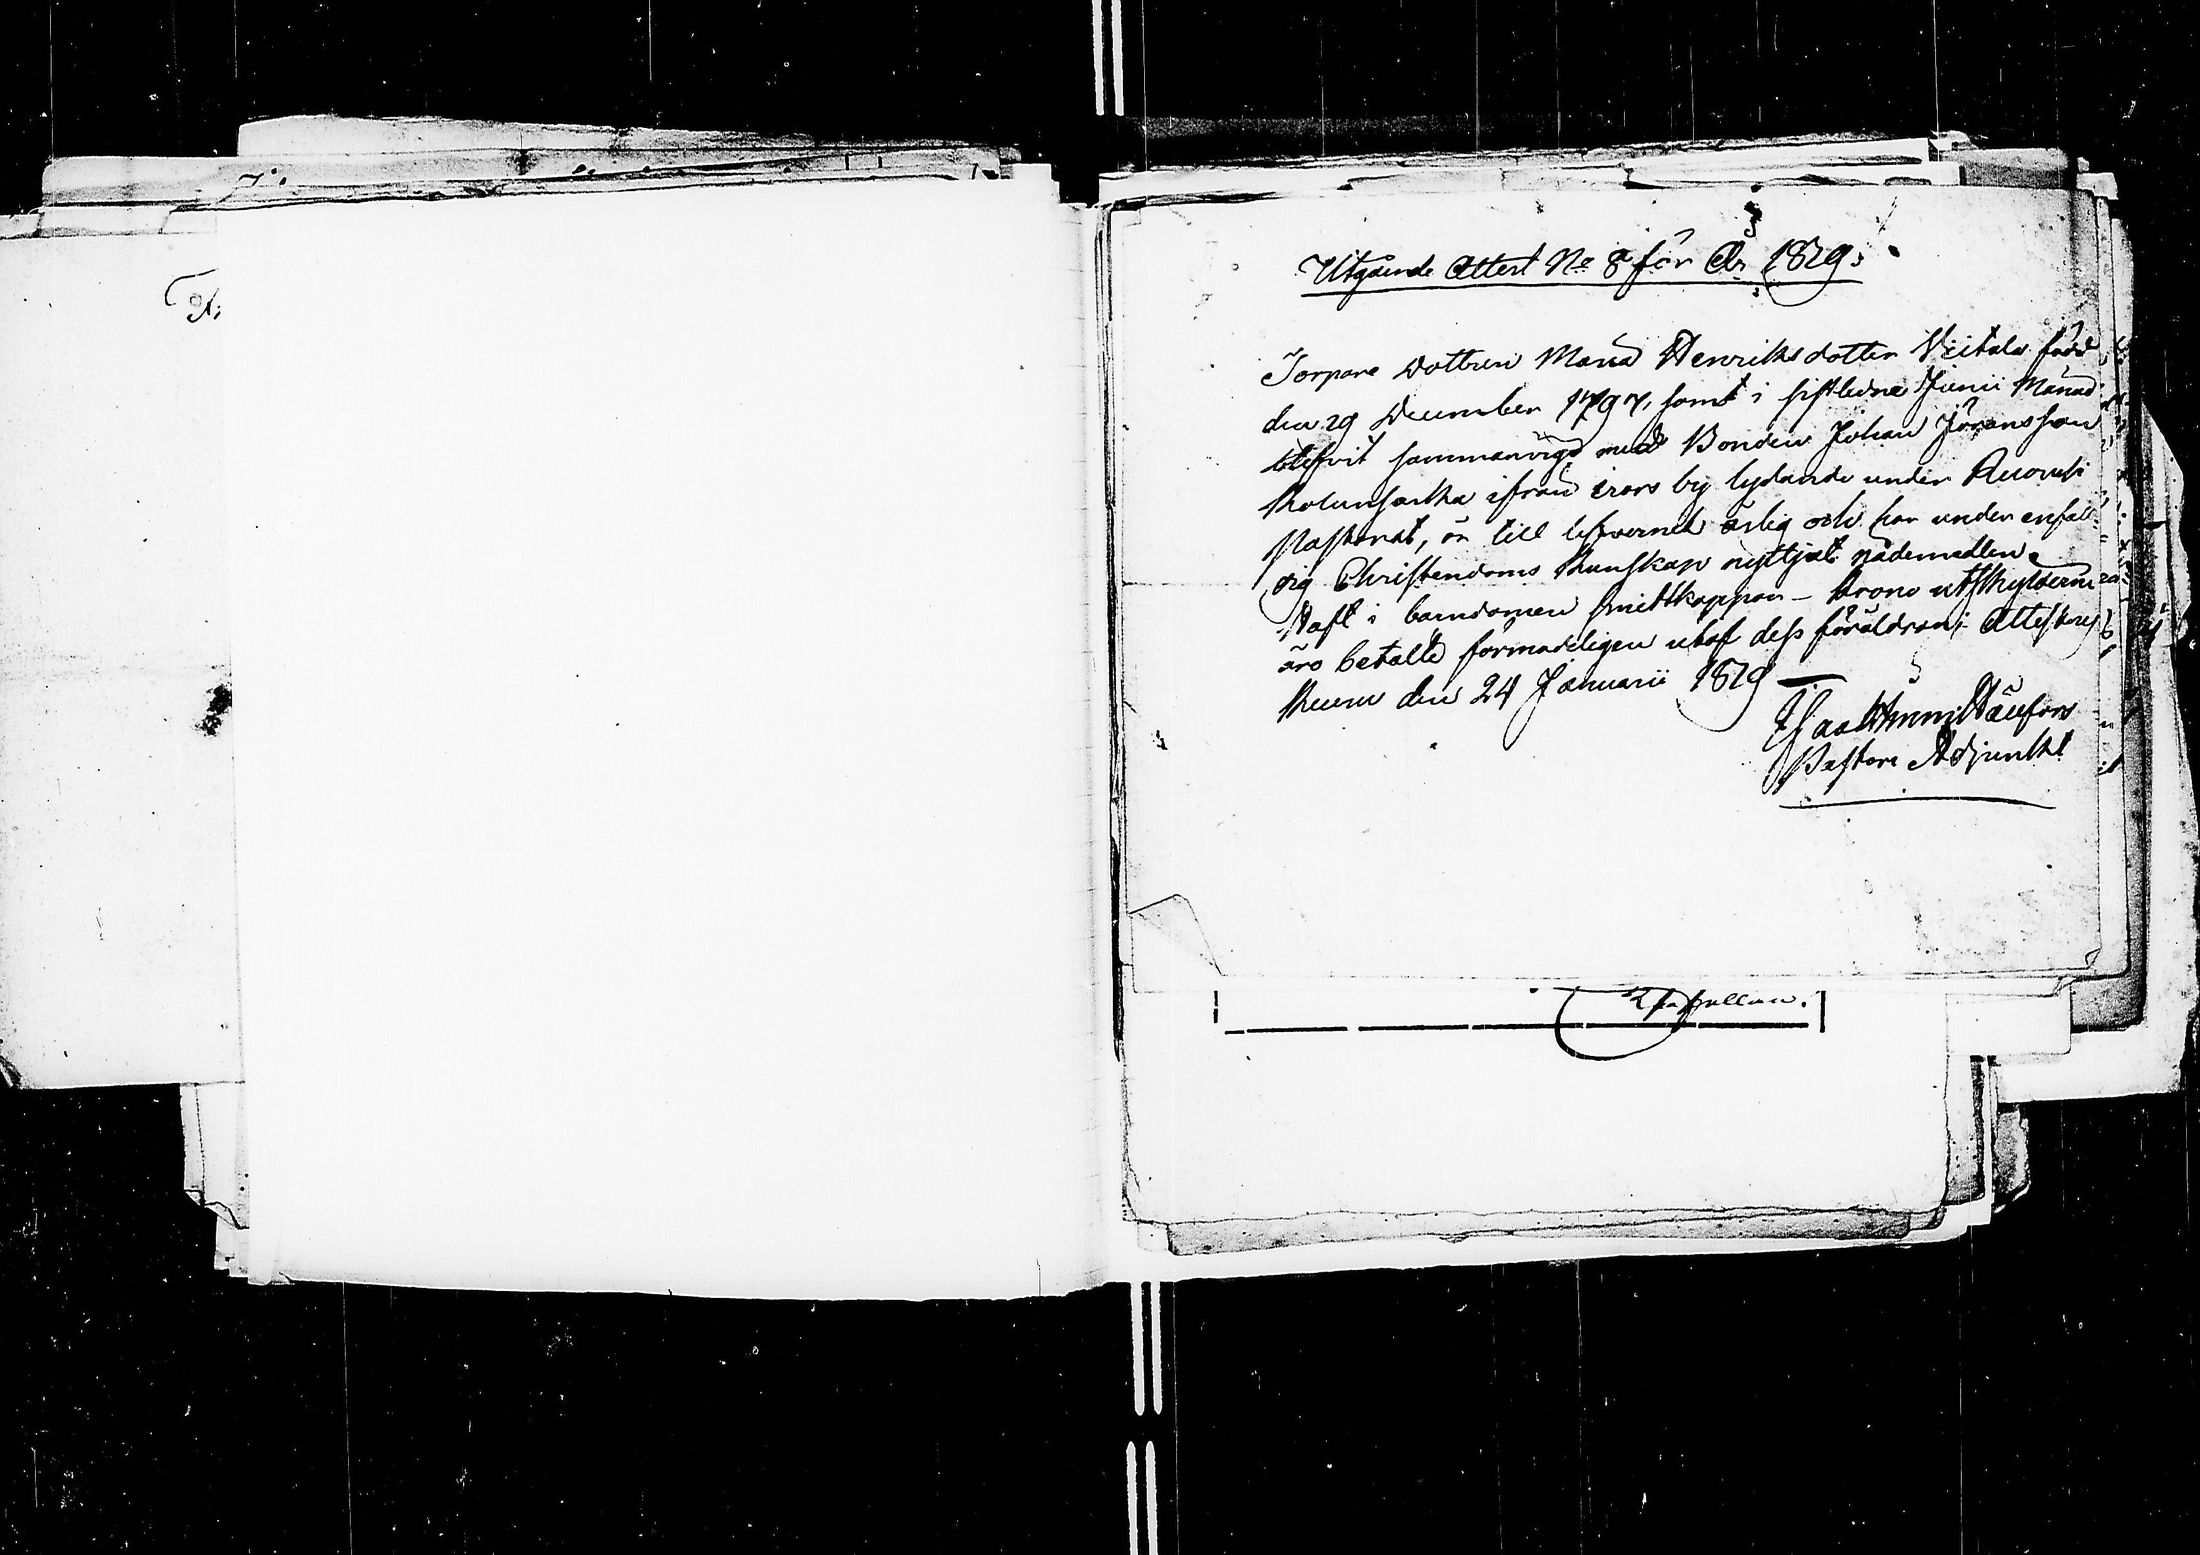 Utgående Attest No 8 för År 1829.
Torpare Dottren Maria Henriksdotter Viitala född
den 29 December 1797, som i sistledne Junii Månad
blifvit sammanvigd med Bonden Johan Jöransson
ifrån by lydande under Ruovesi
Pastorat, är till lefvernet ärlig och har under enfall-
dig Christendoms kunskap nyttjat nådemedlen.
Haft i barndomen smittkoppor – krono utskylderne
äro betalte förmodeligen utaf dess föräldrar;
den 24 Januarii 1829 —
Pastors Adjunkt